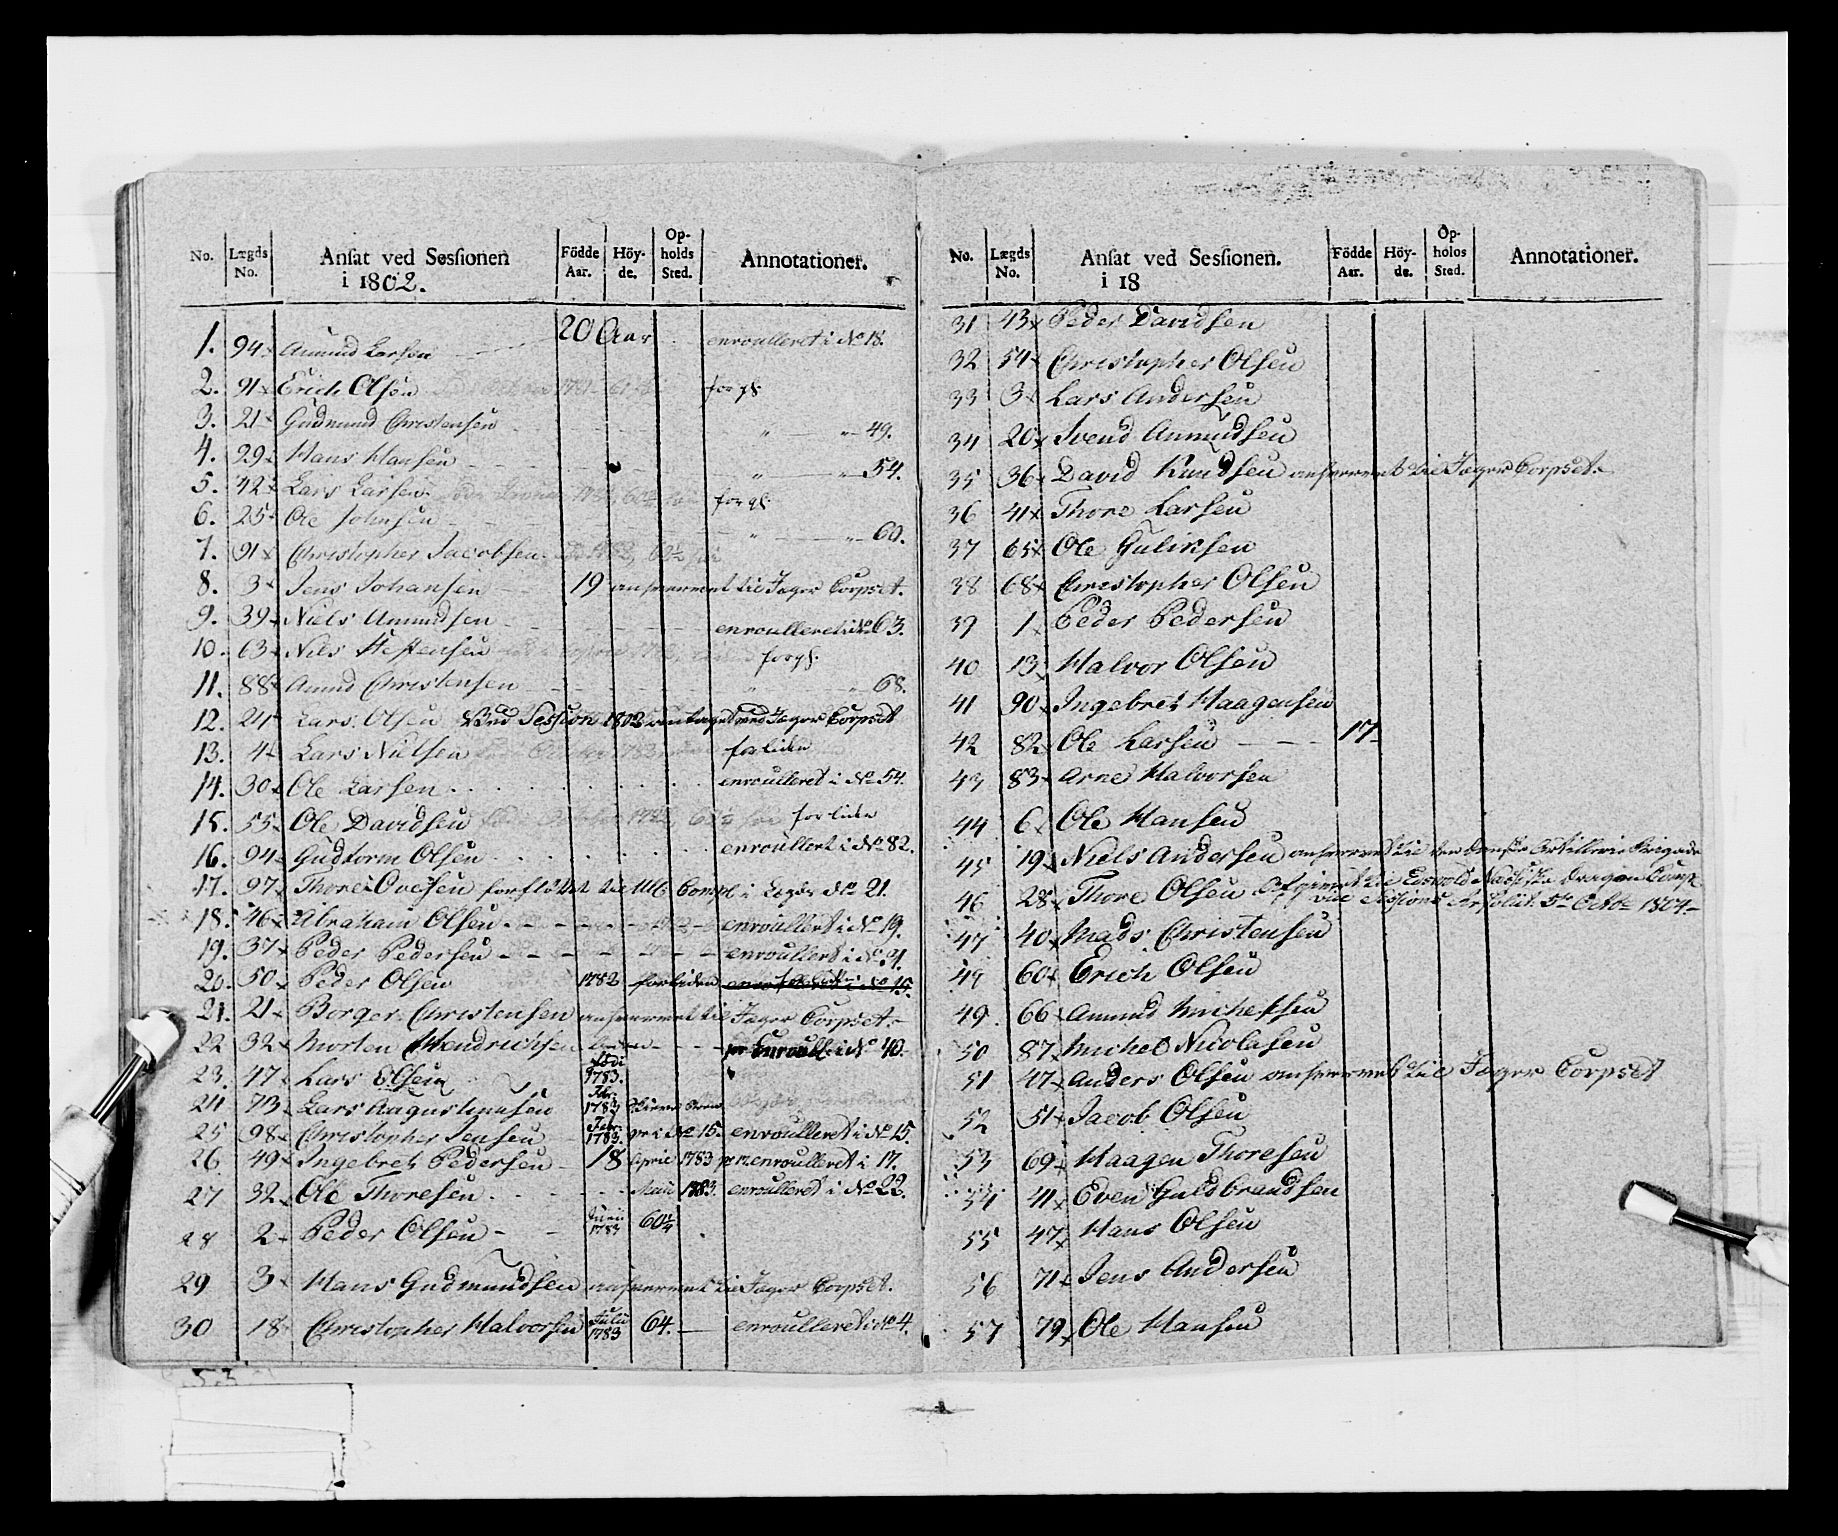 No. Lægds No. Ansat ved Sessionen i 1802. Födde Aar. Höyde. Opholds Sted. Annotationer.
20 Aar
1. 94 Amund Larsen enroulleret i No 18.
2. 91 Erich Olsen forgl.
3. 21 Gudmund Christensen " " 49.
4. 29 Hans Hansen " " 54.
5. 42 Lars Larsen forgl.
6. 25 Ole Johnsen " " 60.
7. 91 Christopher Jacobsen
8. 3 Jens Johansen 19 ansværvet til Jæger Corpset.
9. 39 Niels Amundsen enroulleret i No 63.
10. 63 Niels Steffensen forgl.
11. 88 Amund Christensen " " 68.
12. 24 Lars Olsen Ved Session 1802 antaget ved Jæger Corpset
13. 4 Lars Nielsen forliden
14. 30 Ole Larsen enroulleret i No 54.
15. 55 Ole Davidsen forliden
16. 94 Gudtorm Olsen enroullert i No 82.
17. 97 Thore Ovesen forflöttet til Ul: Comp: i Lægds No 21.
18. 46 Abraham Olsen enroullert i No 19.
19. 37 Peder Pedersen enroullert i No 9.
20. 50 Peder Olsen 1782 forliden
21. 21 Borger Christensen ansværvet til Jæger Corpset
22 32 Morten Hendrichsen Enroull: i No 40.
23. 47 Lars Olsen född 1783.
24 73 Lars Augustinusen Fbr: 1783
25 98 Christopher Jensen Febr: 1783. gr i No 15. enroulleret i No 15.
26. 49 Ingebret Pedersen 18 April 1783 enroulleret i 17.
27 32 Ole Thoresen Maii 1783. enroulleret i No 22.
28 2 Peder Olsen Junii 1783 60 1/4
29 3 Hans Gudmundsen ansværvet til Jæger Corpset.
30 18 Christopher Halvorsen Julii 1783 64. enroulleret i No 4.
No. Lægds No. Ansat ved Sessionen. i 18 Födde Aar. Höyde. Opholds Sted. Annotationer.
31 43 Peder Davidsen
32 54 Christopher Olsen
33 3 Lars Andersen
34 20 Svend Anmundsen
35 36 David Knudsen ansværvet til Jæger Corpset
36 41 Thore Larsen
37 65 Ole Guliksen
38 68 Christopher Olsen
39 1 Peder Pedersen
40 13 Halvor Olsen
41 90 Ingebret Haagensen
42 82 Ole Larsen 17
43 83 Arne Halvorsen
44 6 Ole Hansen
45 19 Niels Andersen ansværvet til den Danske Artillerie Brigade
46 28 Thore Olsen Afgivet til Eiswold Næssiske Dragon Comp: ved Sessions Resolut: 5te Octbr 1804
47 40 Mads Christensen
49 60 Erich Olsen
49 66 Amund Michelsen
50 87 Michel Nicolasen
51 47 Anders Olsen ansværvet til Jæger Corpset
52 51 Jacob Olsen
53 69 Haagen Thoresen
54 41 Even Guldbrandsen
55 47 Hans Olsen
56 71 Jens Andersen
57 79 Ole Hansen